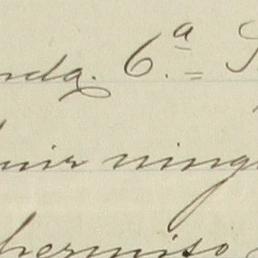 nda. 6.ª S
uir ningu
permiso